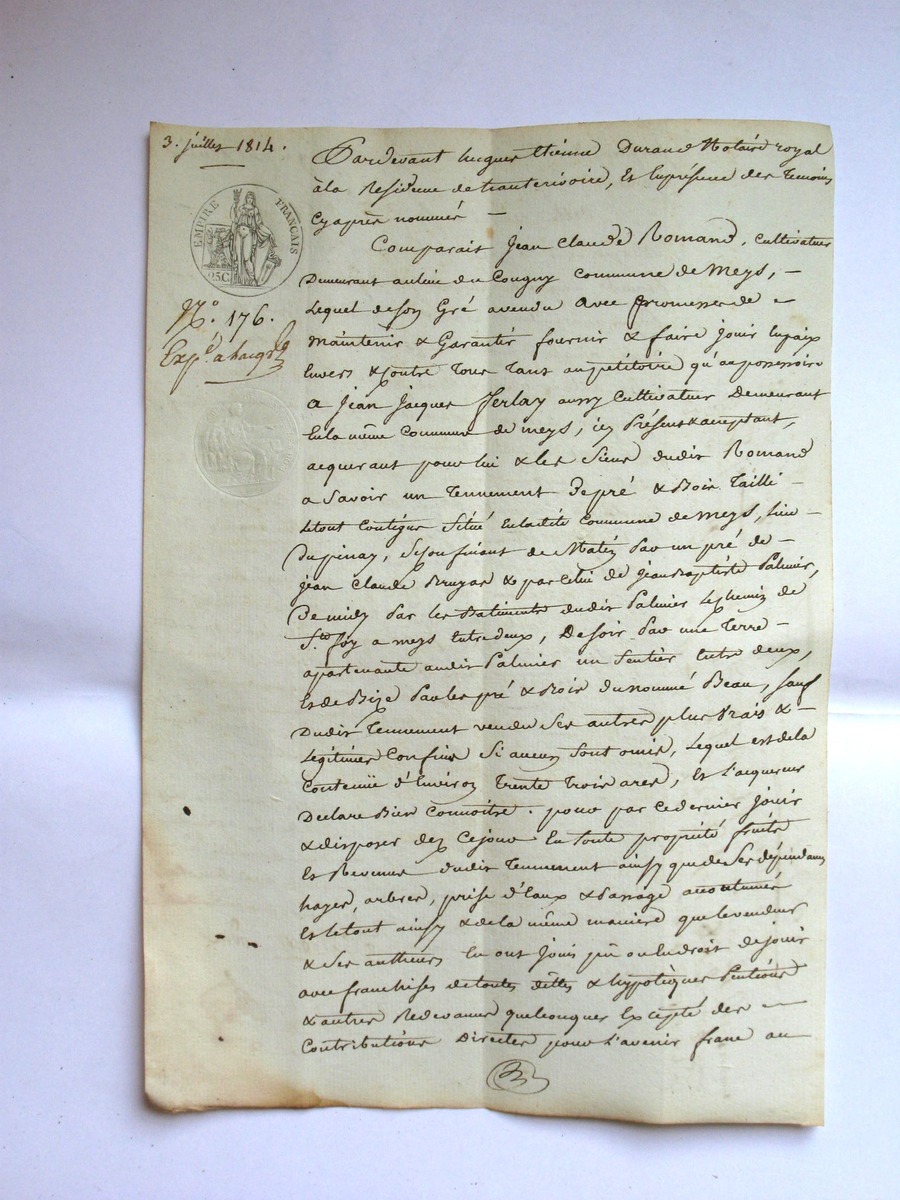 3. juillet 1814.
EMPIRE FRANÇAIS
25C
N.º 176.
Exp.é
Pardevant hugues étienne Durand Notaire royal
à la Residence de , Et En présence des Temoins
Cy après nommés —
Comparait Jean Claude Romand, Cultivateur
Demeurant au lieu du Cougny Commune de Meys, —
Lequel de son Gré a vendu avec promesse de —
Maintenir & Garantir fournir & faire jouir en paix
Envers & Contre Tous Tant au pétitoire qu'au possessoire
a Jean Jacques Ferlay aussy Cultivateur Demeurant
En la même Commune de meys, icy Présent & acceptant,
acquerant pour lui & les Siens dudit Romand
a Savoir un Tennement De pré & Bois Taillé —
Le tout Contigus Situé En ladite Commune de Meys, lieu —
Du pinay, Se Confinant de Matin Par un pré de —
jean Claude Bruyas & par Celui de jean Baptiste Palmier,
De midy Par les Batiments dudit Palmier Le chemin de
S.te foy a meys Entre deux, De soir Par une Terre —
apartenante audit Palmier un Sentier Entre deux,
Et de Bize Par les pré & Bois du nommé Beau, Sauf
Dudit Tennement vendu Ses autres plus Vrais & —
Legitimes Confins Si aucuns Sont omis, Lequel est de la
Contenüe d'Environ Trente Trois ares, Et L'acquereur
Declare Bien Connoitre. pour par ce dernier jouir
& disposer dez Ce jour En Toute propriété fruits
Et Revenus dudit Tennement ainsy que de Ses dépendances
hayes, arbres, prise d'Eaux & Passage accoutumés
Et le tout ainsy & de la même maniere que le vendeur
& Ses autheurs En ont jouis pû ou eu droit de jouir
avec franchises de toutes dettes & hypotèques Pentions
& autres Redevances quelconques Excepté des —
Contributions Directes pour L'avenir franc au